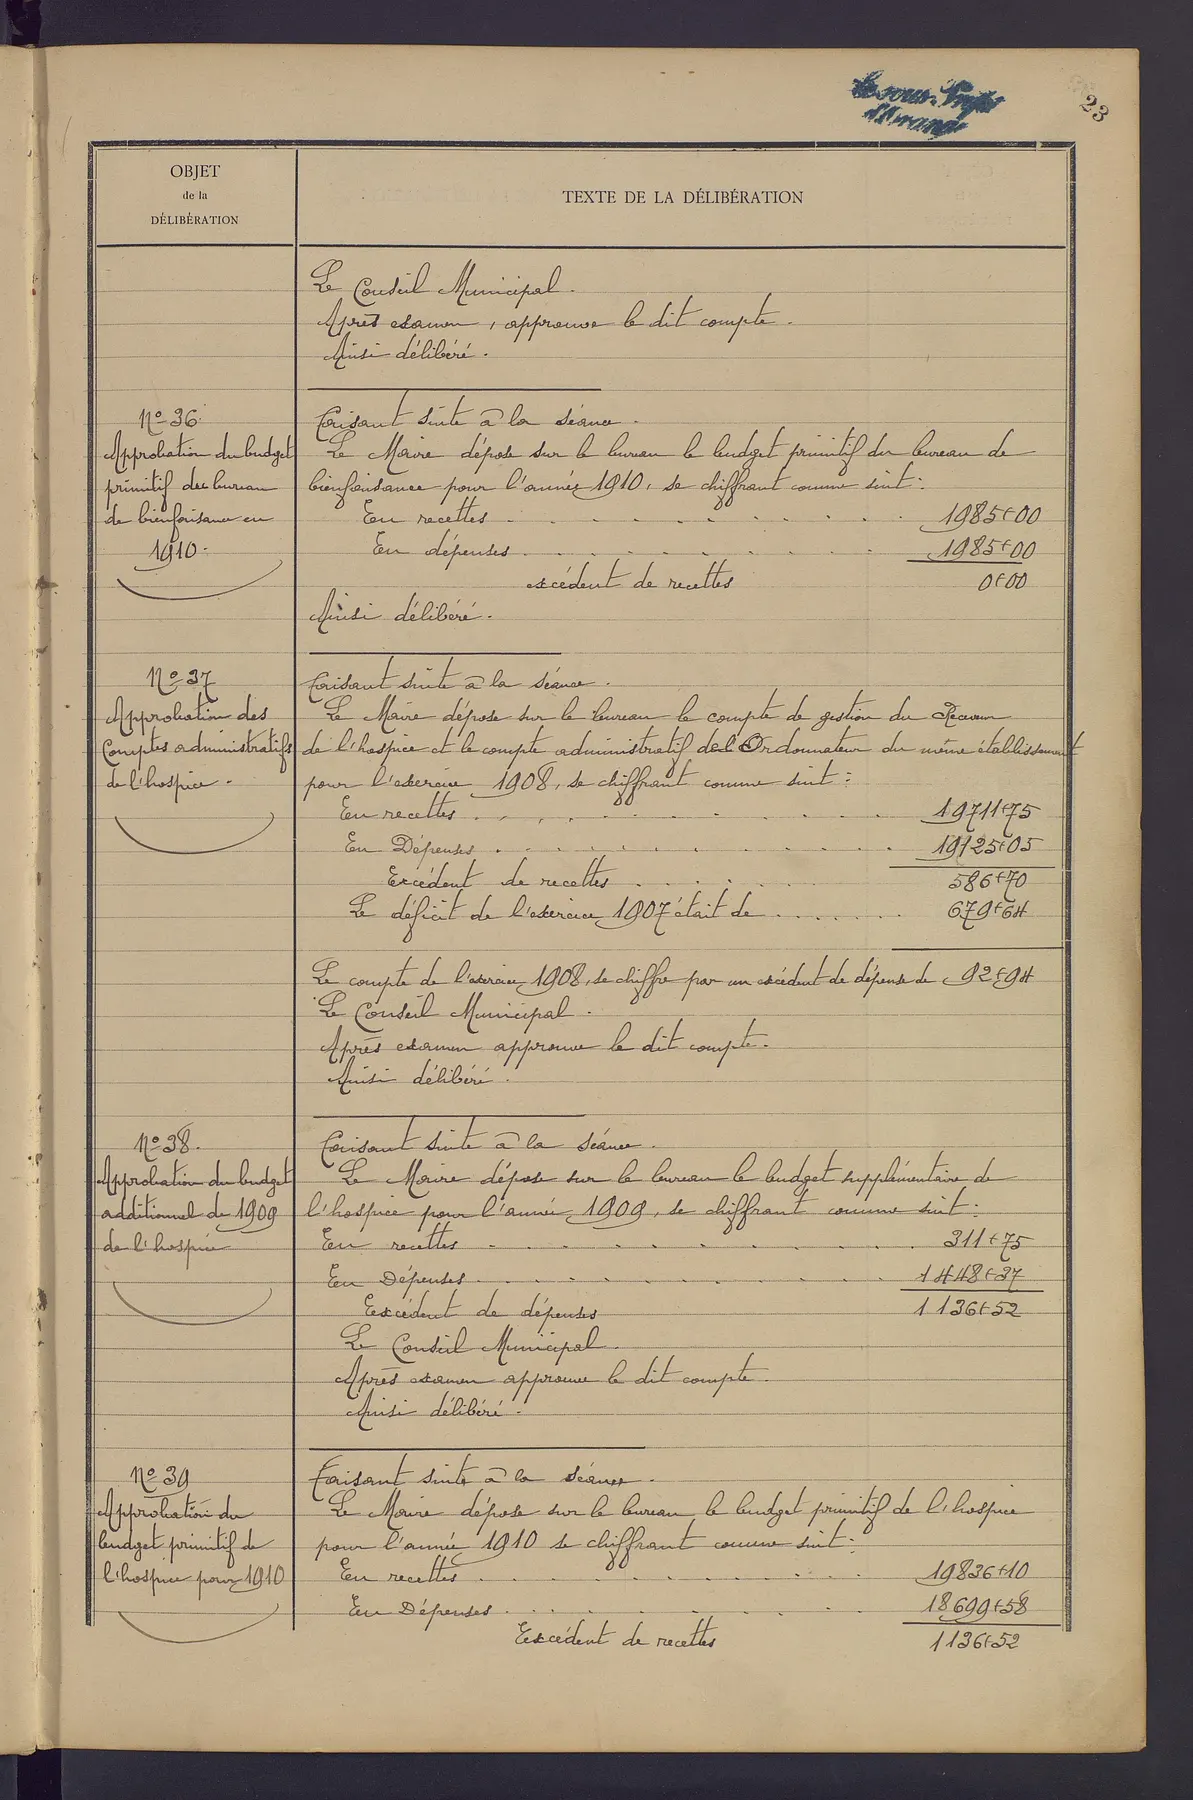 Le sous-Préfet
d'Orange
23
OBJET
de la
DÉLIBÉRATION
TEXTE DE LA DÉLIBÉRATION
Le Conseil Municipal.
Après examen, approuve le dit compte.
Ainsi délibéré.
No 36
Approbation du budget
primitif du bureau
de bienfaisance en
1910.
Faisant suite à la séance.
Le Maire dépose sur le bureau le budget primitif du bureau de
bienfaisance pour l'année 1910, se chiffrant comme suit:
En recettes . . . . . . . . . . . 1985f00
En dépenses . . . . . . . . . . 1985f00
excédent de recettes 0f00
Ainsi délibéré.
No 37
Approbation des
Comptes administratifs
de l'hospice.
Faisant suite à la séance.
Le Maire dépose sur le bureau le compte de gestion du Receveur
de l'hospice et le compte administratif de l'Ordonnateur du même établissement
pour l'exercice 1908, se chiffrant comme suit:
En recettes . . . . . . . . . . . 19711f75
En Dépenses . . . . . . . . . . . 19125f05
Excédent de recettes . . . . . . 586f70
Le déficit de l'exercice 1907 était de . . . . . . . 679f64
Le compte de l'exercice 1908, se chiffre par un excédent de dépense de 92f94
Le Conseil Municipal.
Après examen approuve le dit compte.
Ainsi délibéré.
No 38.
Approbation du budget
additionnel de 1909
de l'hospice
Faisant suite à la séance.
Le Maire dépose sur le bureau le budget supplémentaire de
l'hospice pour l'année 1909, se chiffrant comme suit:
En recettes . . . . . . . . . . . 311f75
En Dépenses . . . . . . . . . . . 1448f37
Excédent de dépenses 1136f52
Le Conseil Municipal.
Après examen approuve le dit compte.
Ainsi délibéré.
No 39
Approbation du
budget primitif de
l'hospice pour 1910
Faisant suite à la séance.
Le Maire dépose sur le bureau le budget primitif de l'hospice
pour l'année 1910 se chiffrant comme suit:
En recettes . . . . . . . . . . . 19836f10
En Dépenses . . . . . . . . . . 18699f58
Excédent de recettes 1136f52